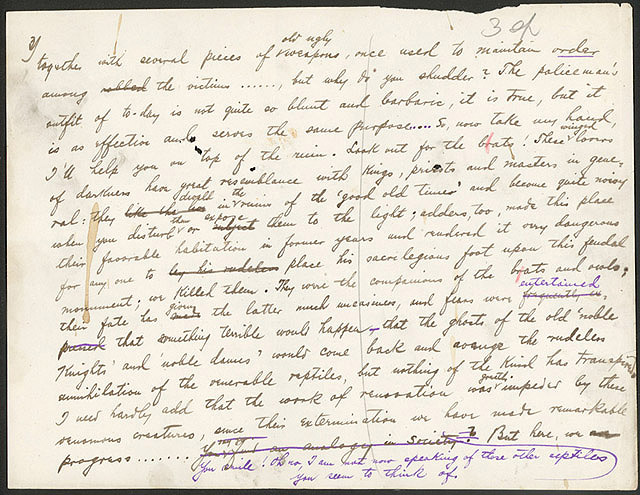 3/ 3 of
together with several pieces of old ugly weapons, once used to maintain order
among robbed the victims ......, but why do you shudder? The policeman's
outfit of to-day is not quite so blunt and barbaric, it is true, but it
is as effective and serves the same purpose.... So, now take my hand,
I'll help you on top of the ruin. Look out for the bats! These winged lovers
of darkness have great resemblance with kings, priests and masters in gene-
ral: they dwell in the ruins of the "good old times" and become quite noisy
when you disturb them or expose subject them to the light; adders, too, made this place
their favorable habitation in former years and rendered it very dangerous
for any one to place his sacrilegious foot upon this feudal
monument; we killed them. They were the companions of the bats and owls;
their fate has given the latter much uneasiness, and fears were entertained
that something terrible would happen – that the ghosts of the old 'noble
Knights' and 'noble dames' would come back and avenge the rudeless
annihilation of the venerable reptiles, but nothing of the kind has transpired
I need hardly add that the work of renovation was greatly impeded by these
venomous creatures, since their extermination we have made remarkable
progress ......... an analogy in Society? But here, we
You smile! Oh no, I am not now speaking of those other reptiles
you seem to think of.